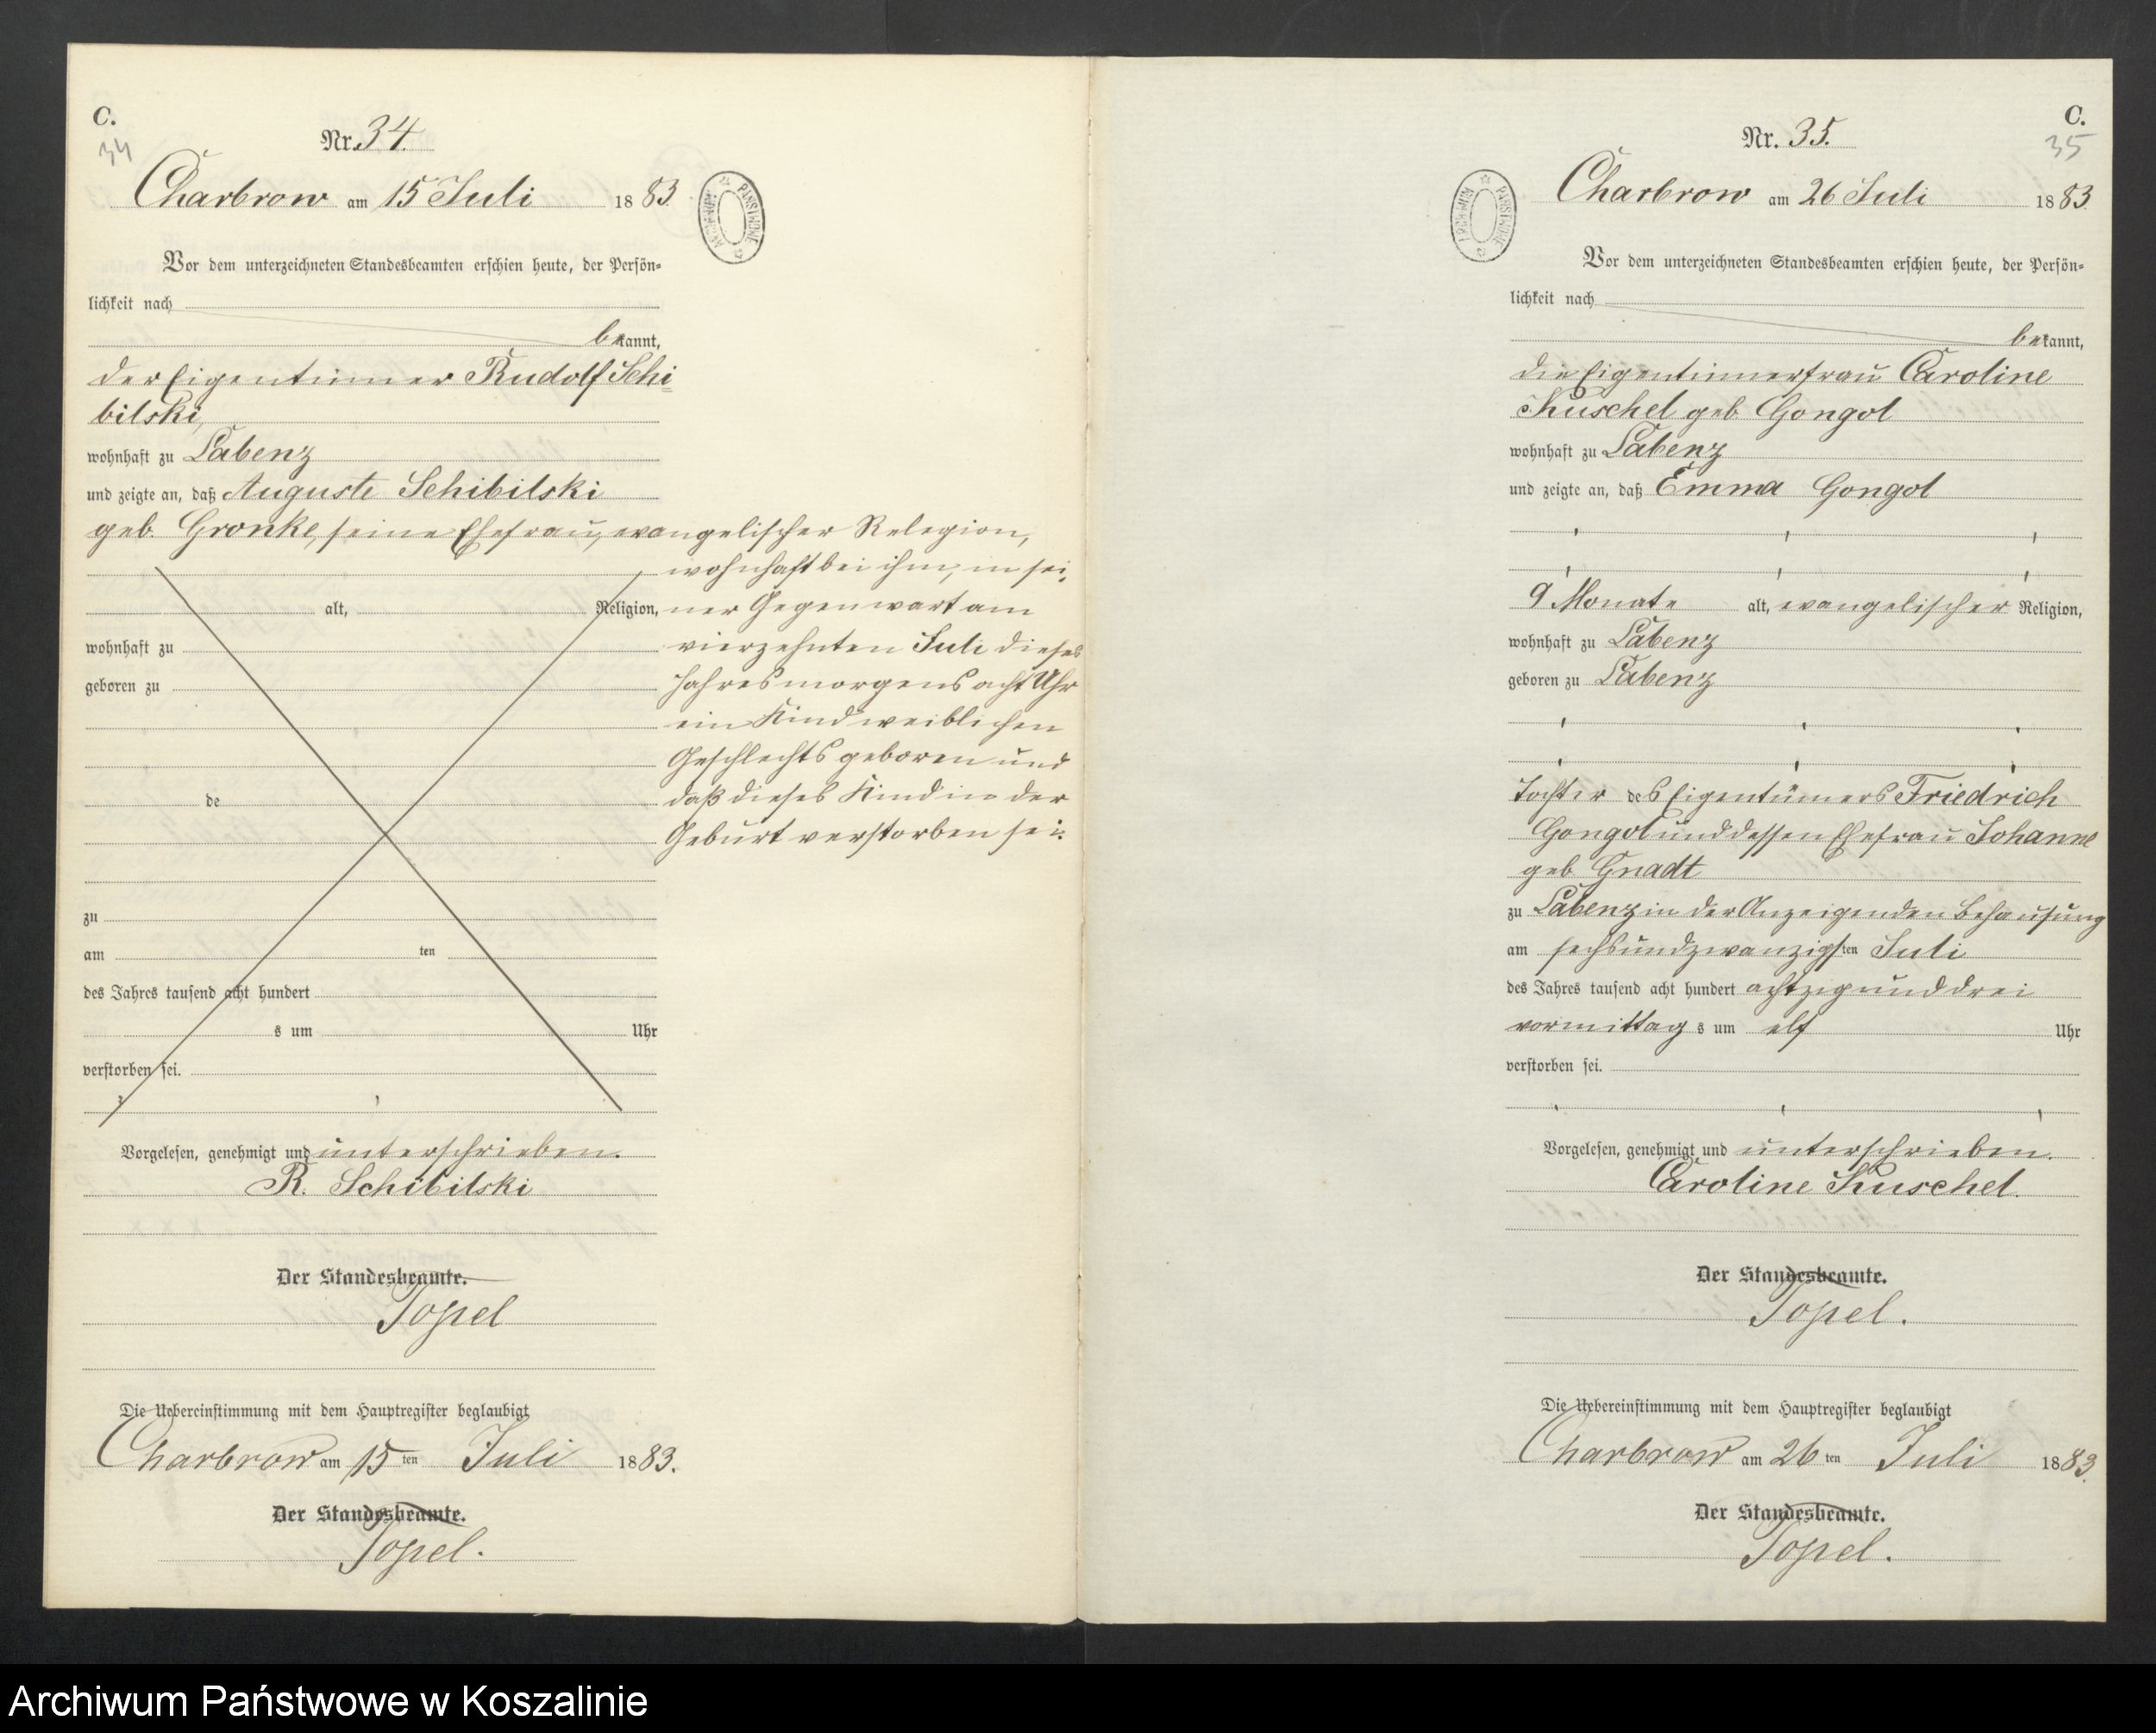 C.
34
Nr. 34.
Charbrow am 15 Juli 1883.
ARCHIWUM PAŃSTWOWE
Vor dem unterzeichneten Standesbeamten erschien heute, der Persön-
lichkeit nach
bekannt,
der Eigentümer Rudolf Schi
bilski,
wohnhaft zu Labenz
und zeigte an, daß Auguste Schibilski
geb. Gronke, seine Ehefrau, evangelischer Relegion,
wohnhaft bei ihm, in sei,
alt, Religion, ner Gegenwart am
wohnhaft zu vierzehnten Juli dieses
geboren zu Jahres morgens acht Uhr
ein Kind weiblichen
Geschlechts geboren und
de daß dieses Kind in der
Geburt verstorben sei.
zu
am ten
des Jahres tausend acht hundert
s um Uhr
verstorben sei.
Vorgelesen, genehmigt und unterschrieben.
R. Schibilski
Der Standesbeamte.
Topel
Die Uebereinstimmung mit dem Hauptregister beglaubigt
Charbrow am 15ten Juli 1883.
Der Standesbeamte.
Topel.
C.
35
Nr. 35.
Charbrow am 26 Juli 1883
ARCHIWUM PAŃSTWOWE
Vor dem unterzeichneten Standesbeamten erschien heute, der Persön-
lichkeit nach
bekannt,
die Eigentümerfrau Caroline
Kuschel geb. Gongol
wohnhaft zu Labenz
und zeigte an, daß Emma Gongol
9 Monate alt, evangelischer Religion,
wohnhaft zu Labenz
geboren zu Labenz
Tochter des Eigentümers Friedrich
Gongol und dessen Ehefrau Johanne
geb. Gnadt
zu Labenz in der Anzeigenden Behausung
am sechsundzwanzigsten Juli
des Jahres tausend acht hundert achtzig und drei
vormittags um elf Uhr
verstorben sei.
Vorgelesen, genehmigt und unterschrieben.
Caroline Kuschel.
Der Standesbeamte.
Topel.
Die Uebereinstimmung mit dem Hauptregister beglaubigt
Charbrow am 26ten Juli 1883.
Der Standesbeamte.
Topel.
Archiwum Państwowe w Koszalinie